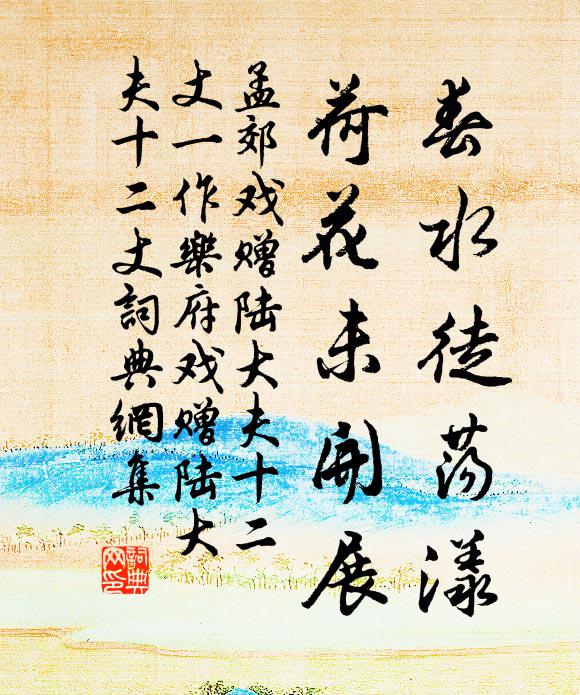 春水徒荡漾
荷花未開展
孟郊戏赠陆大夫十二
丈一作樂府戏赠陆大
夫十二丈詞典網集
詞典
网印